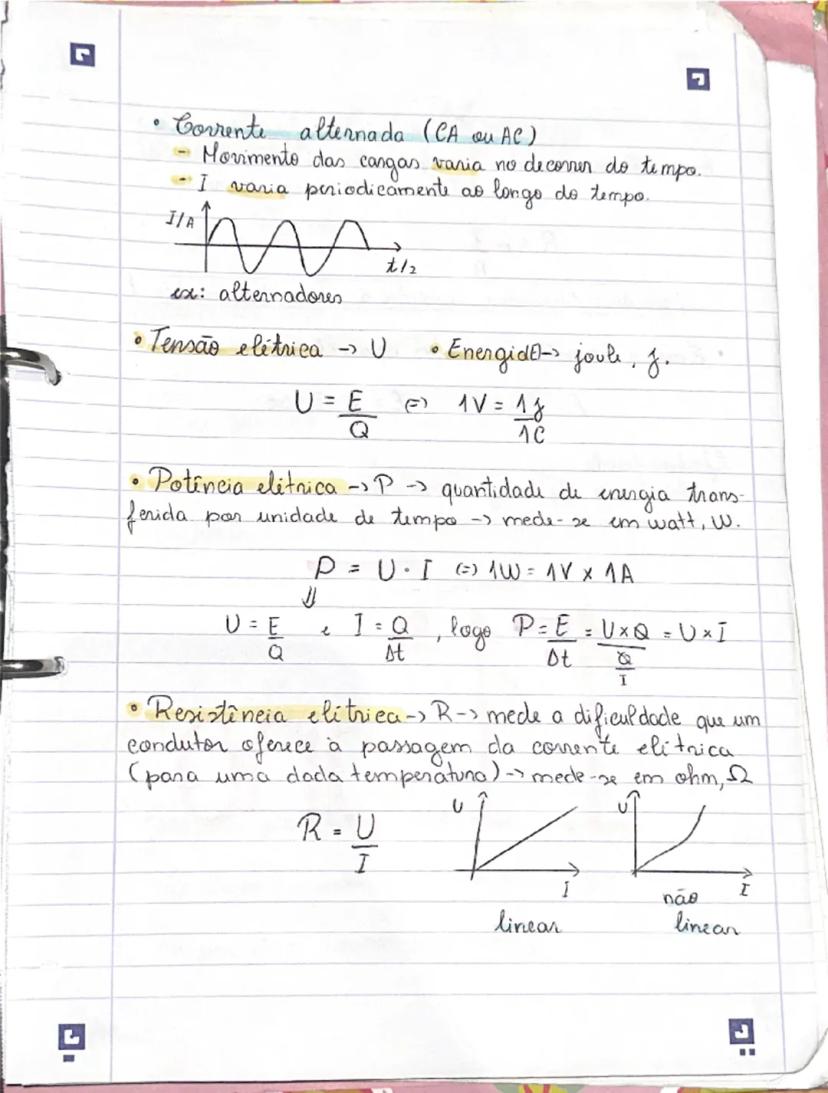 • Corrente alternada (CA ou AC)
- Movimento das cargas varia no decorrer do tempo.
- I varia periodicamente ao longo do tempo.
I/A
t/2
ex: alternadores
• Tensão elétrica -> U • Energia(E)-> joule, J.
U = E/Q (=) 1V = 1J/1C
• Potência elétrica -> P -> quantidade de energia trans-
ferida por unidade de tempo -> mede-se em watt, W.
P = U · I (=) 1W = 1V x 1A
⇓
U = E/Q e I = Q/Δt , logo P = E/Δt = U x Q/(Q/I) = U x I
• Resistência elétrica -> R -> mede a dificuldade que um
condutor oferece à passagem da corrente elétrica
(para uma dada temperatura) -> mede-se em ohm, Ω
R = U/I
U
I
linear
U
I
não
linear